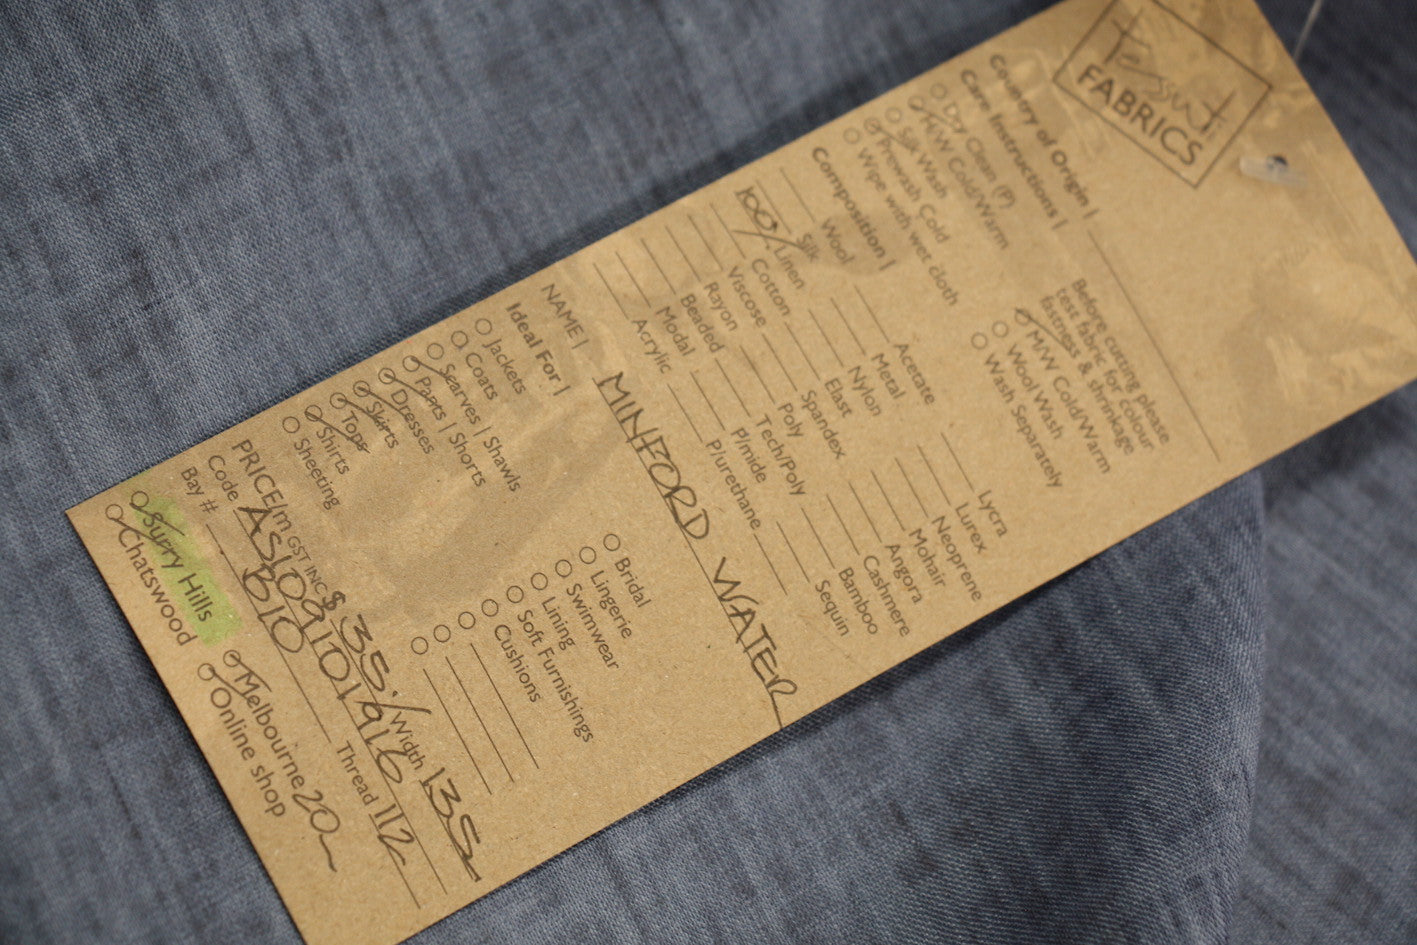 Tessuti
FABRICS
Country of Origin |
Care Instructions |
Dry Clean (P)
M/W Cold/Warm
Silk Wash
Prewash Cold
Wipe with wet cloth
Before cutting please
test fabric for colour
fastness & shrinkage
M/W Cold/Warm
Wool Wash
Wash Separately
Composition |
Wool
Silk
100% Linen
Cotton
Viscose
Rayon
Beaded
Modal
Acrylic
Acetate
Metal
Nylon
Elast
Spandex
Poly
Tech/Poly
P/mide
P/urethane
Lycra
Lurex
Neoprene
Mohair
Angora
Cashmere
Bamboo
Sequin
NAME | MINFORD WATER
Ideal For |
Jackets
Coats
Scarves | Shawls
Pants | Shorts
Dresses
Skirts
Tops
Shirts
Sheeting
Bridal
Lingerie
Swimwear
Lining
Soft Furnishings
Cushions
PRICE/m GST INC $ 35. Width 135
Code AS109101916 Thread 112
Bay # B10
Surry Hills Melbourne 20m
Chatswood Online shop